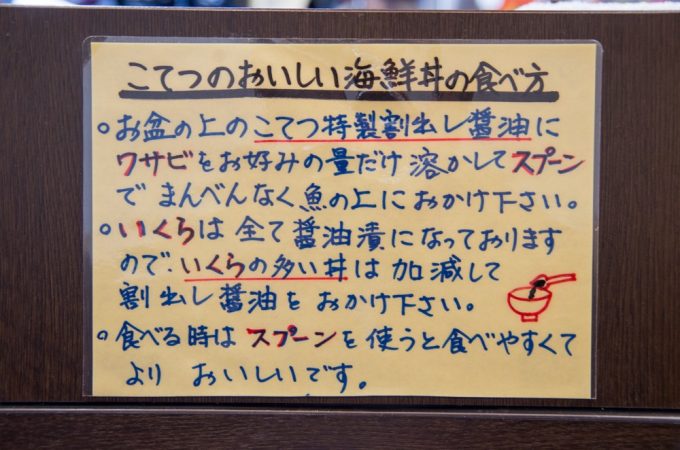 こてつのおいしい海鮮丼の食べ方
。お盆の上のこてつ特製割出し醤油に
ワサビをお好みの量だけ溶かしてスプーン
でまんべんなく魚の上におかけ下さい。
。いくらは全て醤油漬になっております
ので、いくらの多い丼は加減して
割出し醤油をおかけ下さい。
。食べる時はスプーンを使うと食べやすくて
よりおいしいです。